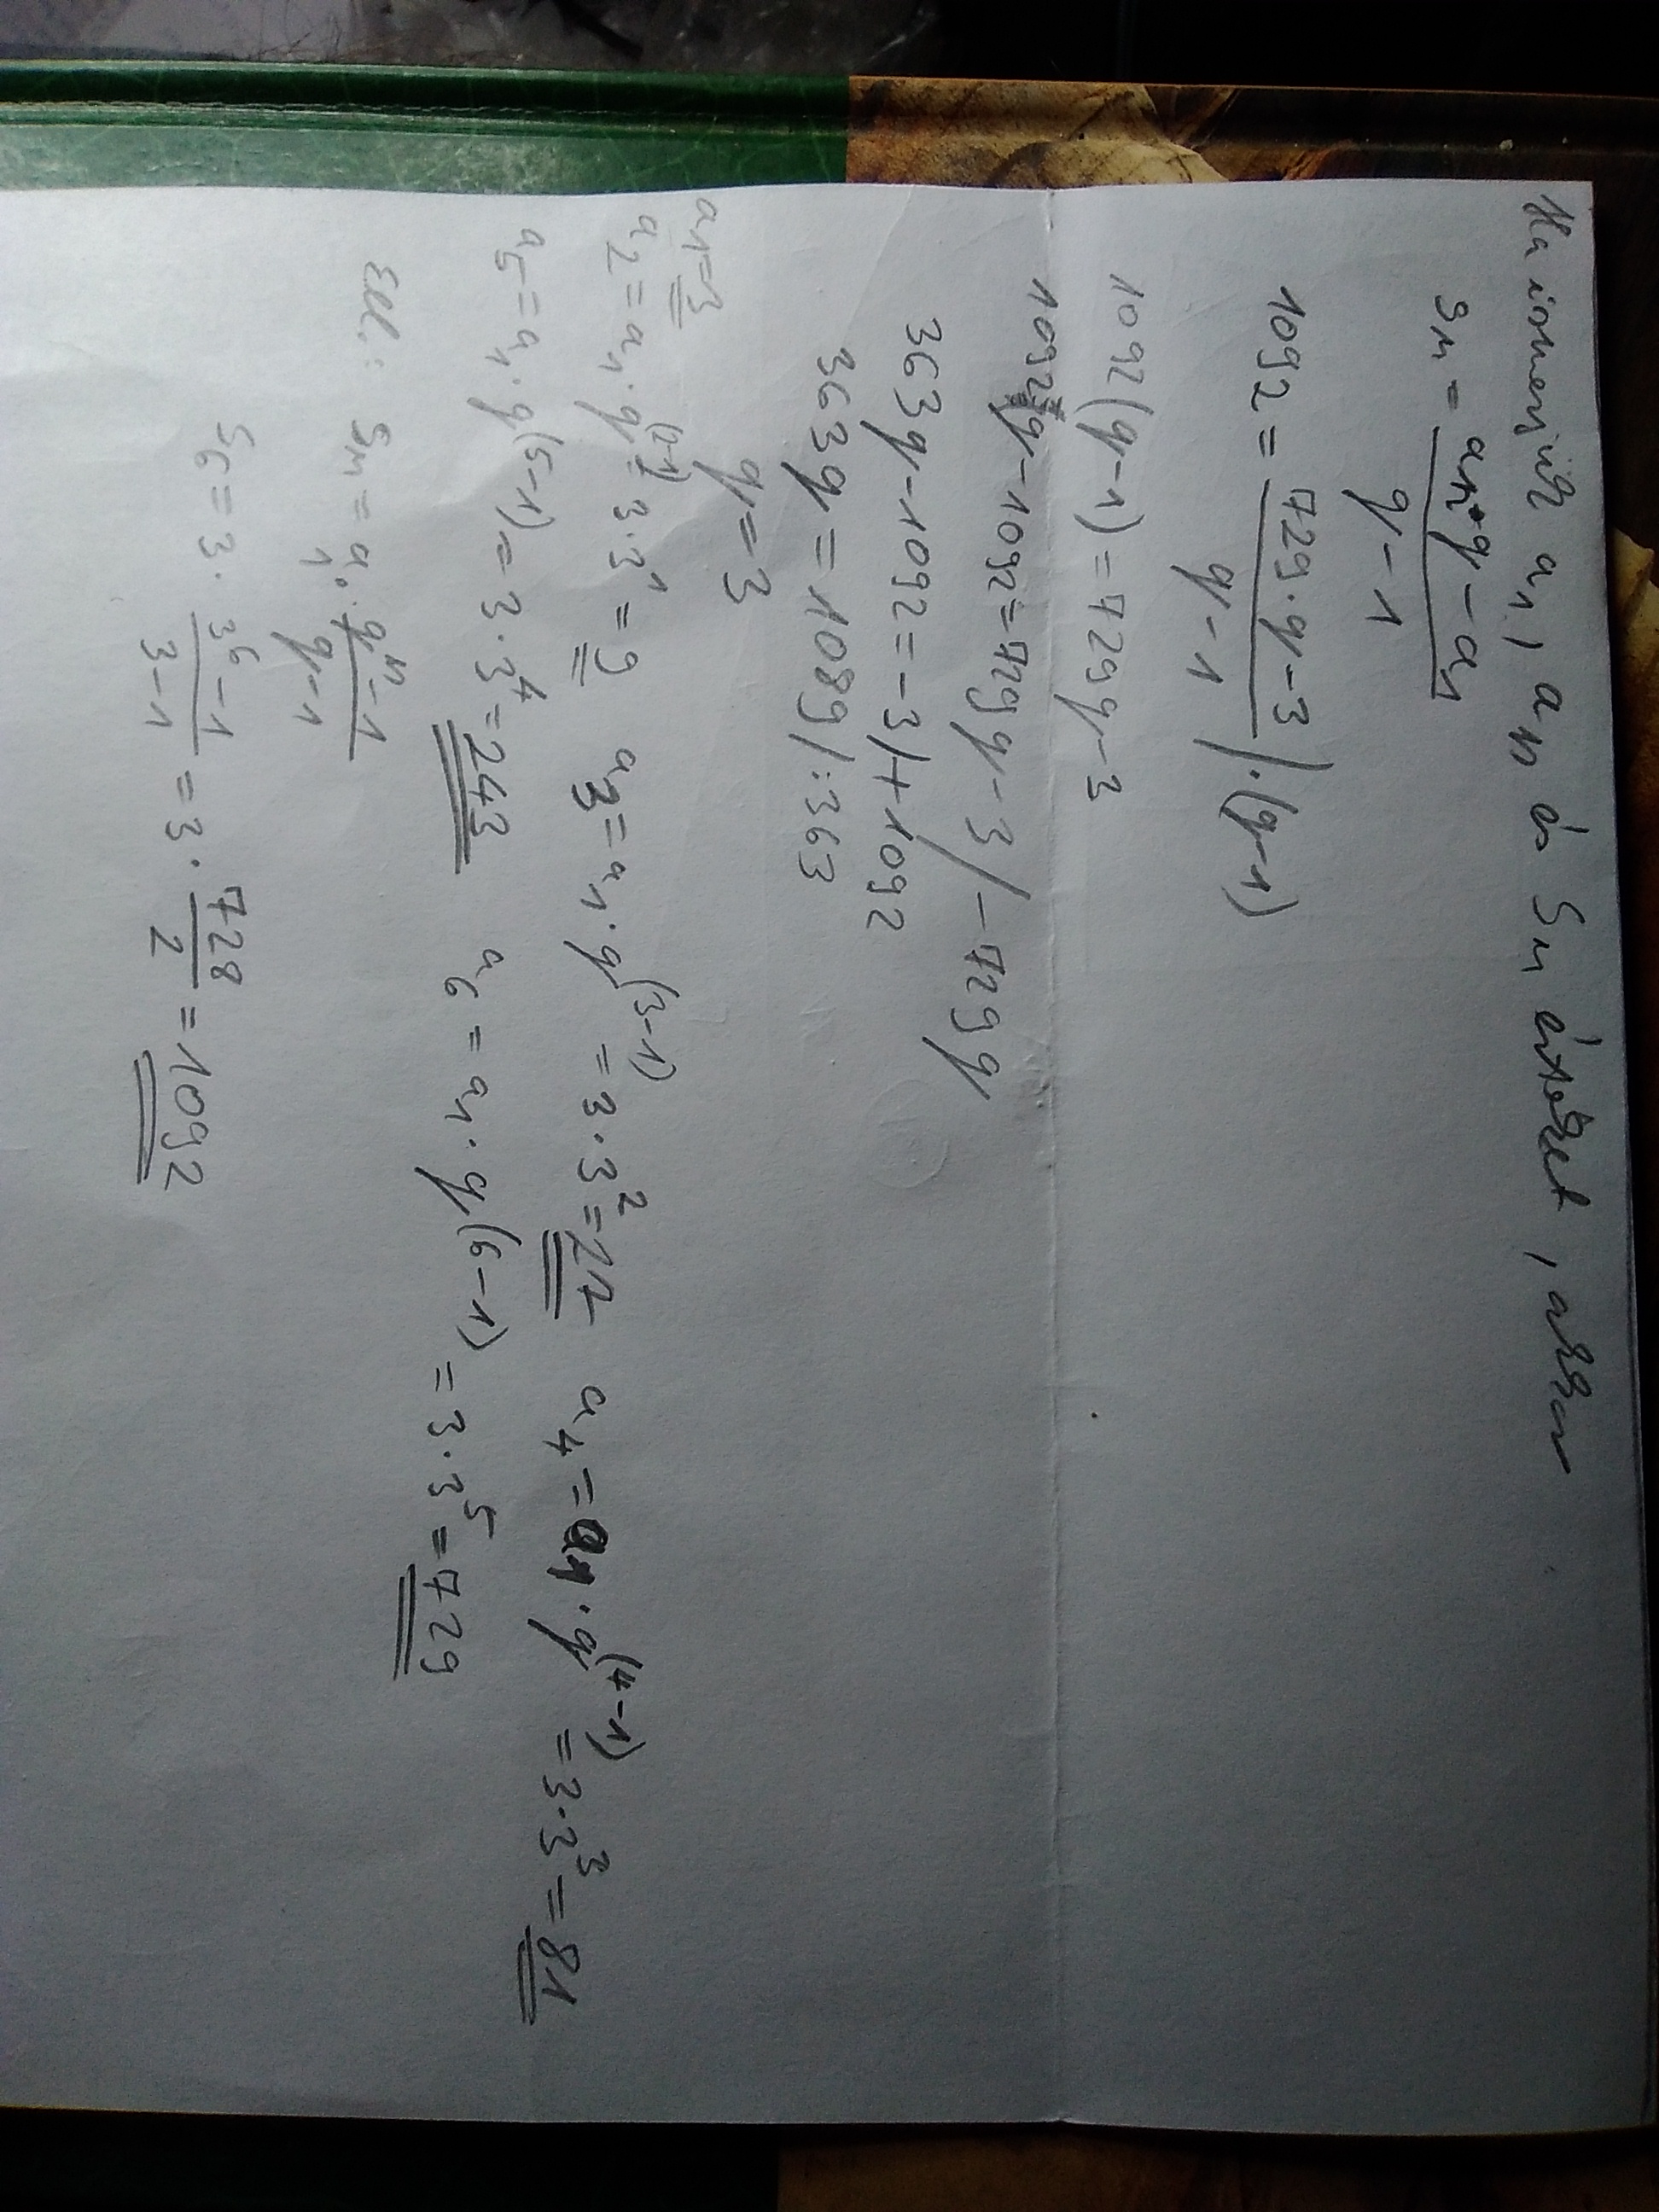 Ha ismerjük a₁, an és Sn értékét, akkor
Sn = (an·q − a₁)/(q − 1)
1092 = (729·q − 3)/(q − 1) /·(q−1)
1092(q−1) = 729q−3
1092q − 1092 = 729q − 3 /−729q
363q − 1092 = −3 /+1092
363q = 1089 /:363
q = 3
a₁ = 3
a₂ = a₁·q⁽²⁻¹⁾ 3·3¹ = 9 a₃ = a₁·q⁽³⁻¹⁾ = 3·3² = 27 a₄ = a₁·q⁽⁴⁻¹⁾ = 3·3³ = 81
a₅ = a₁·q⁽⁵⁻¹⁾ = 3·3⁴ = 243 a₆ = a₁·q⁽⁶⁻¹⁾ = 3·3⁵ = 729
Ell.: Sn = a₁·(qⁿ − 1)/(q − 1)
S₆ = 3·(3⁶ − 1)/(3 − 1) = 3·728/2 = 1092